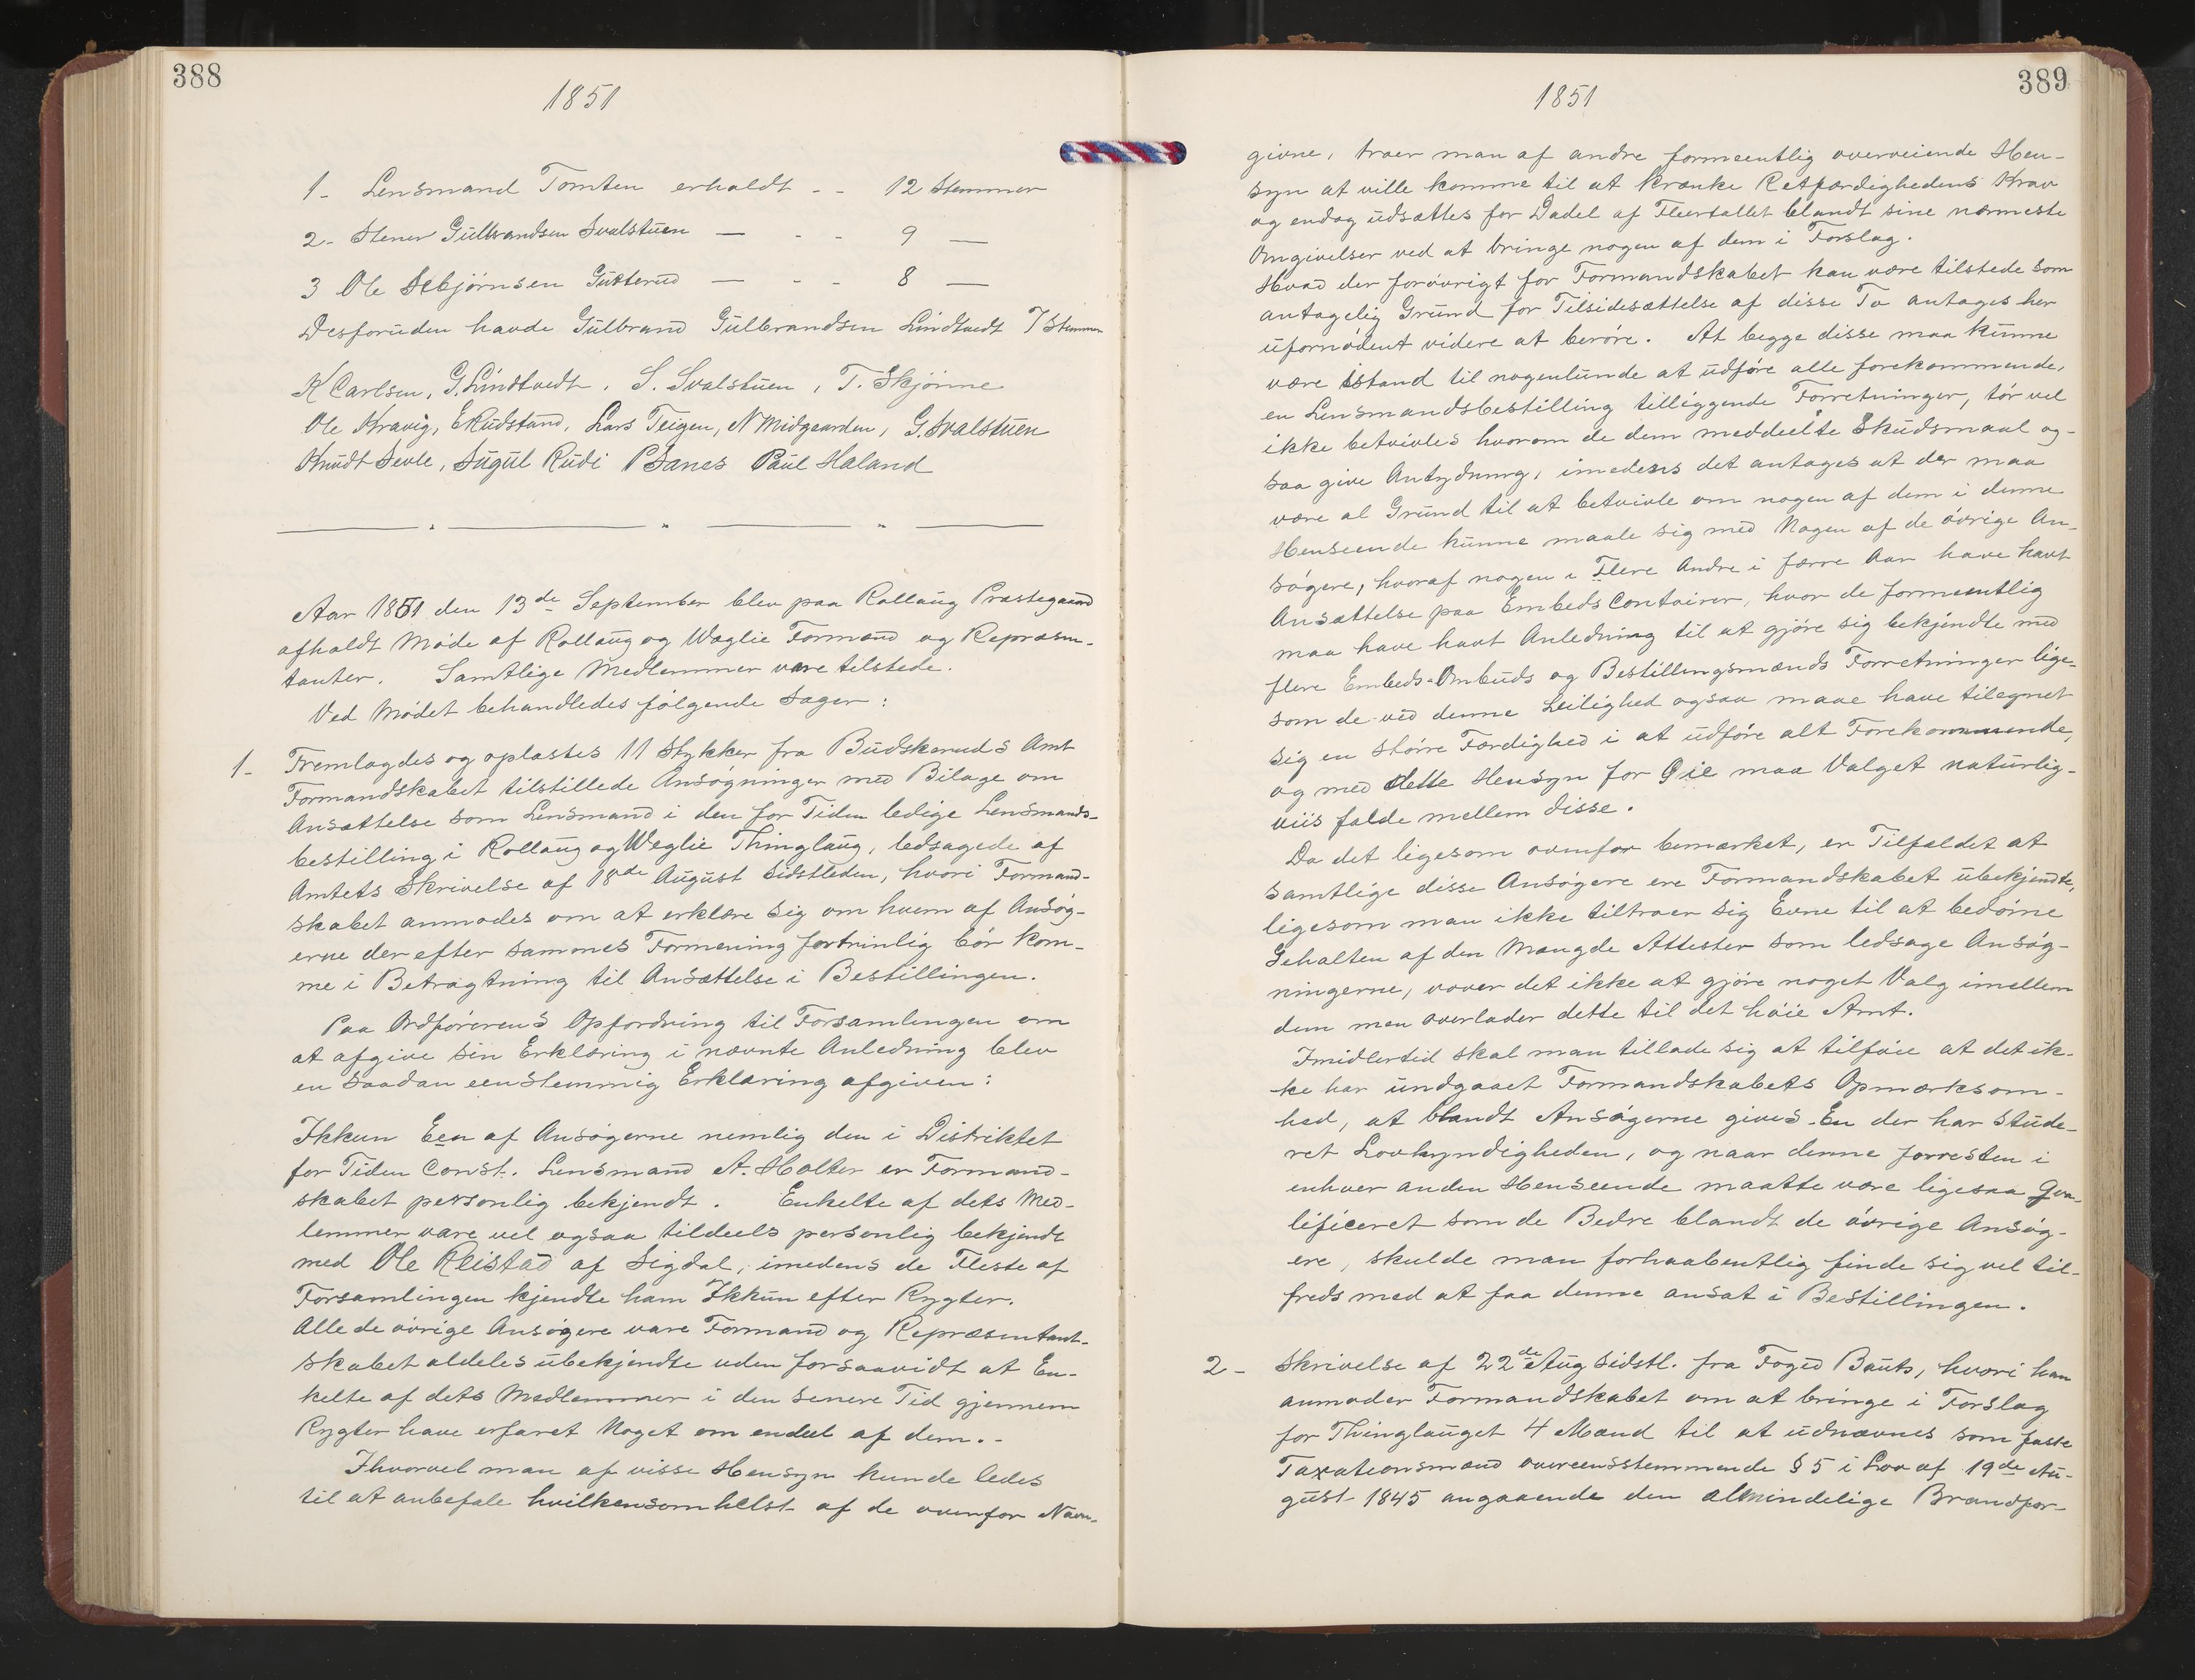 388
1851
1- Lensmand Tomten erholdt - - 12 Stemmer
2- Stener Gulbrandsen Svalstuen — - - 9 —
3 Ole Asbjørnsen Gutterud — - - 8 —
Desforuden havde Gulbrand Gulbrandsen Lindtvedt 7 Stemmer
K Carlsen, G. Lindtvedt, S. Svalstuen, T. Skjønne
Ole Kravig, E Rudstand, Lars Teigen, N Midgaarden, G. Svalstuen
Knudt Sevle, Sugul Rudi P Sanes Paul Haland
Aar 1851 den 13de September blev paa Rollaug Præstegaard
afholdt Møde af Rollaug og Wæglie Formænd og Repræsen-
tanter. Samtlige Medlemmer vare tilstede.
Ved Mødet behandledes følgende Sager:
1- Fremlagdes og oplæstes 11 Stykker fra Budskeruds Amt
Formandskabet tilstillede Ansøgninger med Bilage om
Ansættelse som Lensmand i den for Tiden ledige Lensmands-
bestilling i Rollaug og Weglie Thinglaug, ledsagede af
Amtets Skrivelse af 18de August sidstleden, hvori Formand-
skabet anmodes om at erklære sig om hvem af Ansøg-
erne der efter sammes Formening fortrinlig bør kom-
me i Betragtning til Ansættelse i Bestillingen.
Paa Ordførerens Opfordring til Forsamlingen om
at afgive sin Erklæring i nævnte Anledning blev
en saadan eenstemmig Erklæring afgiven:
Ikkun Een af Ansøgerne nemlig den i Distriktet
for Tiden Const. Lensmand A. Holter er Formand-
skabet personlig bekjendt. Enkelte af dets Med-
lemmer vare vel ogsaa tildeels personlig bekjendt
med Ole Reistad af Sigdal, imedens de Fleste af
Forsamlingen kjendte ham Ikkun efter Rygter.
Alle de øvrige Ansøgere vare Formænd og Repræsentant-
skabet aldeles ubekjendte uden forsaavidt at En-
kelte af dets Medlemmer i den senere Tid gjennem
Rygter have erfaret Noget om endeel af dem.-
Ihvorvel man af visse Hensyn kunde ledes
til at anbefale hvilkensomhelst af de ovenfor Navn-
389
1851
givne, troer man af andre formeentlig overveiende Hen-
syn at ville komme til at krænke Retfærdighedens Krav
og endog udsættes for Dadel af Fleertallet blandt sine nærmeste
Omgivelser ved at bringe nogen af dem i Forslag.
Hvad der forøvrigt for Formandskabet kan være tilstede som
antagelig Grund for Tilsidesættelse af disse To antages her
ufornødent videre at berøre. At begge disse maa kunne
være istand til nogenlunde at udføre alle forekommende,
en Lensmandsbestilling tilliggende Forretninger, tør vel
ikke betvivles hvorom de dem meddeelte Skudsmaal og-
saa give Antydning, imedens det antages at der maa
være al Grund til at betvivle om nogen af dem i denne
Henseende kunne maale sig med Nogen af de øvrige An-
søgere, hvoraf nogen i Flere Andre i færre Aar have havt
Ansættelse paa Embeds Contoirer, hvor de formeentlig
maa have havt Anledning til at gjøre sig bekjendte med
flere Embeds-Ombuds og Bestillingsmænds Forretninger lige-
som de ved denne Leilighed ogsaa maae have tilegnet
sig en større Færdighed i at udføre alt Forekommende,
og med dette Hensyn for Øie maa Valget naturlig-
viis falde mellem disse.
Da det ligesom ovenfor bemærket, er Tilfældet at
samtlige disse Ansøgere ere Formandskabet ubekjendte,
ligesom man ikke tiltroer sig Evne til at bedømme
Gehalten af den Mængde Attester som ledsage Ansøg-
ningerne, vover det ikke at gjøre noget Valg imellem
dem men overlader dette til det høie Amt.
Imidlertid skal man tillade sig at tilføie at det ik-
ke har undgaaet Formandskabets Opmærksom-
hed, at blandt Ansøgerne gives En der har stude-
ret Lovkyndigheden, og naar denne forresten i
enhver anden Henseende maatte være ligesaa Qva-
lificeret som de Bedre blandt de øvrige Ansøg-
ere, skulde man forhaabentlig finde sig vel til-
freds med at faa denne ansat i Bestillingen.
2- Skrivelse af 22de Aug sidstl. fra Foged Bauts, hvori han
anmoder Formandskabet om at bringe i Forslag
for Thinglauget 4 Mænd til at udnævnes som faste
Taxationsmænd overeensstemmende § 5 i Lov af 19de Au-
gust 1845 angaaende den almindelige Brandfor-